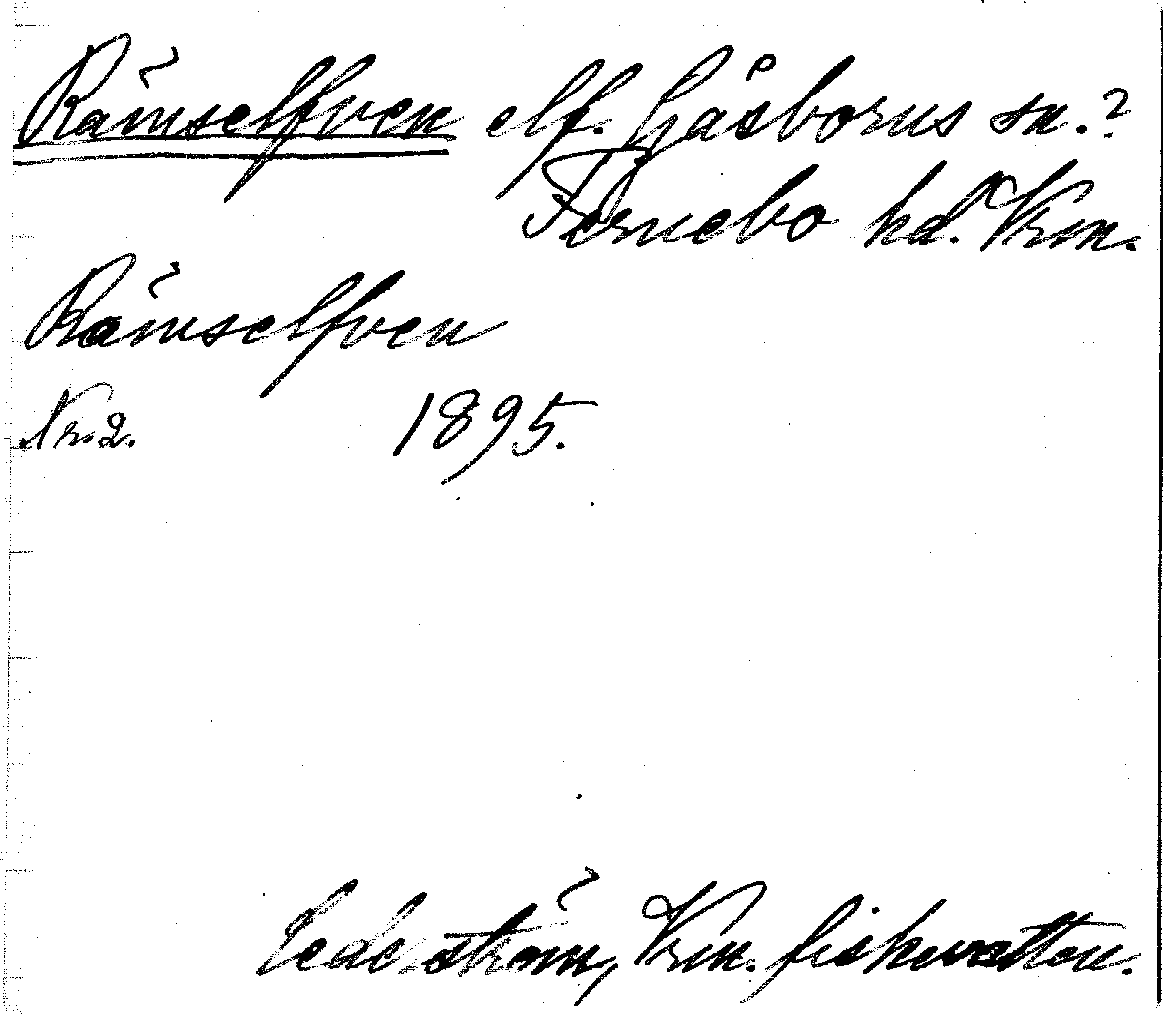 Rämselfven elf. Gåsborns sn.?
Fernebo hd. Vrm.
Rämselfven
Nr. 2. 1895.
Cederström, Vrm. fiskevatten.